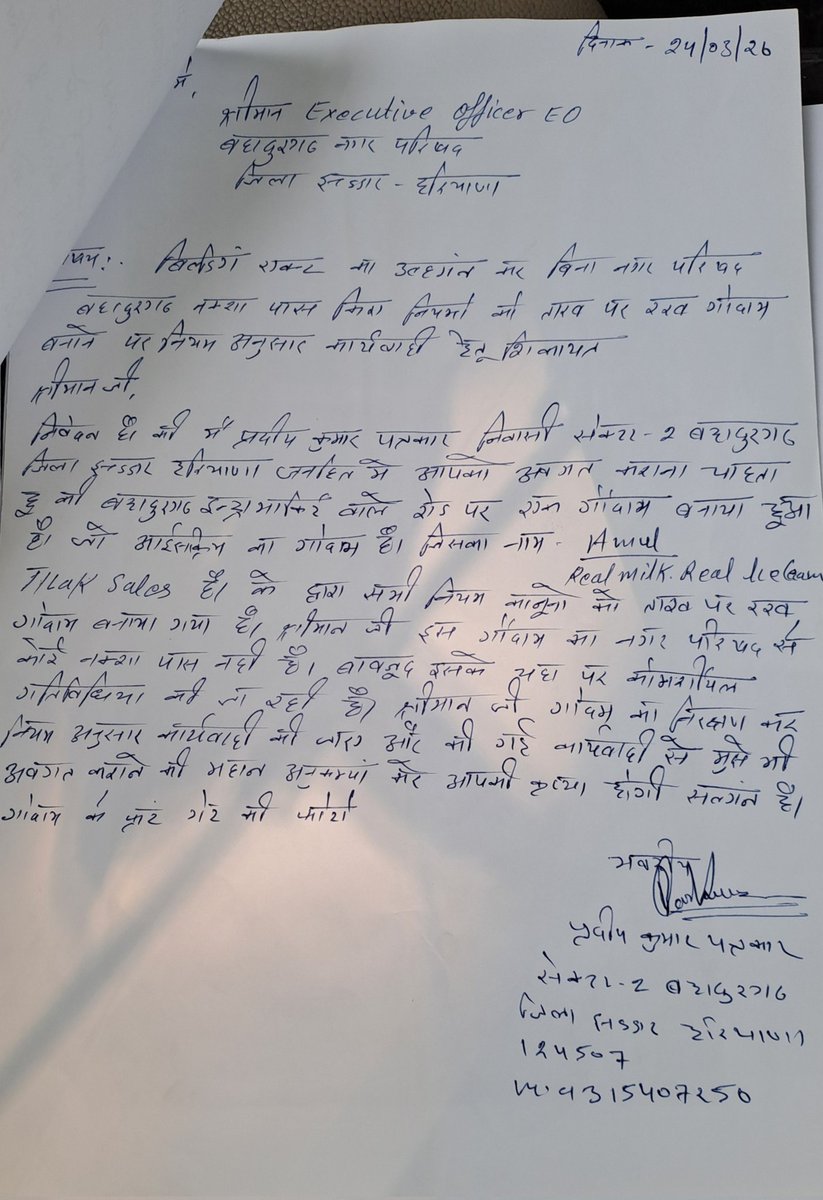 दिनांक - 24/03/26
में,
श्रीमान Executive Officer EO
बहादुरगढ नगर परिषद
जिला झज्जर - हरियाणा
विषय:- बिल्डिंग एक्ट का उल्लघंन कर बिना नगर परिषद
बहादुरगढ नक्शा पास किए नियमों को ताख पर रख गोदाम
बनाने पर नियम अनुसार कार्यवाही हेतू शिकायत
श्रीमान जी,
निवेदन है की मैं प्रदीप कुमार पत्रकार निवासी सेक्टर-2 बहादुरगढ
जिला झज्जर हरियाणा जनहित मे आपको अवगत कराना चाहता
हू की बहादुरगढ इन्द्रा मार्किट वाले रोड पर एक गोदाम बनाया हुआ
है। जो आईसक्रिम का गोदाम है। जिसका नाम - Amul
Real Milk. Real Ice Cream
Tilak Sales है। के द्वारा सभी नियम कानूनो को ताख पर रख
गोदाम बनाया गया है। श्रीमान जी इस गोदाम का नगर परिषद से
कोई नक्शा पास नही है। बावजूद इसके यहा पर कोमर्शियल
गतिविधिया की जा रही है। श्रीमान जी गोदाम का निरक्षण कर
नियम अनुसार कार्यवाही की जाए और की गई कार्यवाही से मुझे भी
अवगत कराने की महान अनुकम्पा करे आपकी कृप्या होगी सलंगन है।
गोदाम के फ्रंट गेट की फोटो
भवदीय
प्रदीप कुमार पत्रकार
सेक्टर-2 बहादुरगढ
जिला झज्जर हरियाणा
124507
M. 9315407250